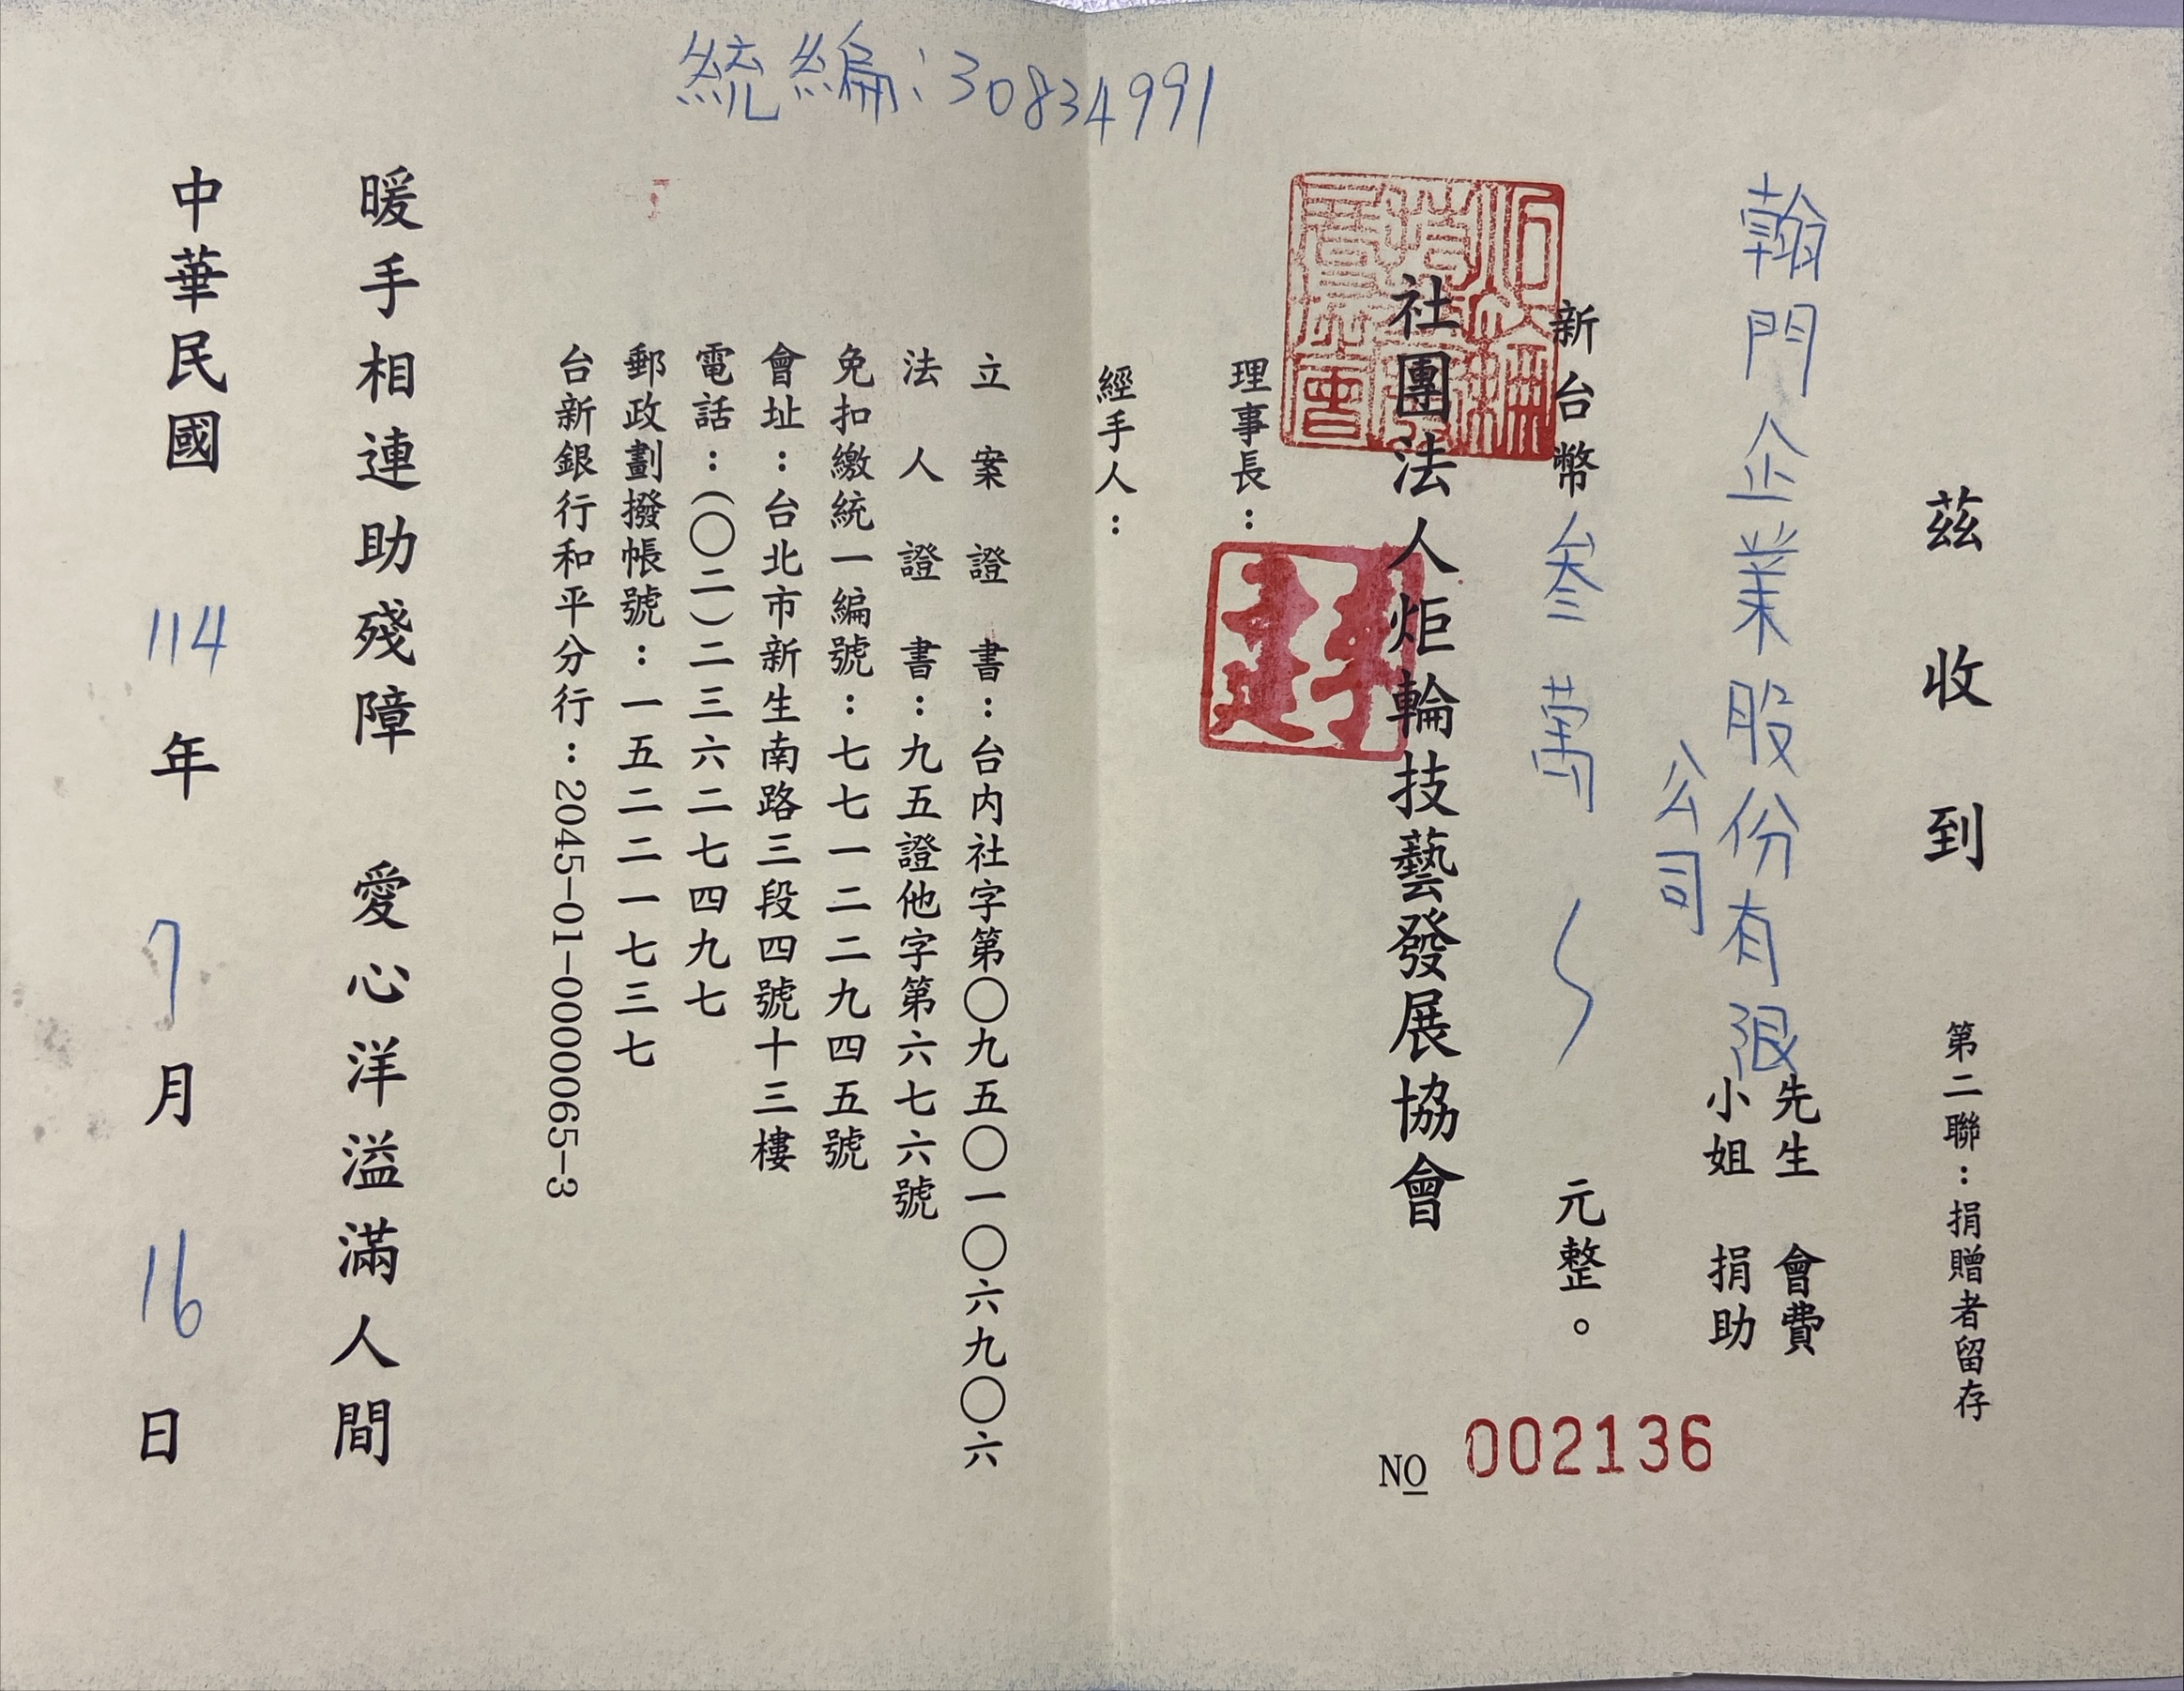 統編：30834991
第二聯：捐贈者留存
茲收到
翰門企業股份有限公司
先生 會費
小姐 捐助
新台幣叁萬元整。
NO 002136
社團法人炬輪技藝發展協會
理事長：
經手人：
立案證書：台內社字第〇九五〇一〇六九〇六
法人證書：九五證他字第六七六號
免扣繳統一編號：七七一二二九四五號
會址：台北市新生南路三段四號十三樓
電話：(〇二)二三六二七四九七
郵政劃撥帳號：一五二二一七三七
台新銀行和平分行：2045-01-0000065-3
暖手相連助殘障 愛心洋溢滿人間
中華民國114年7月16日